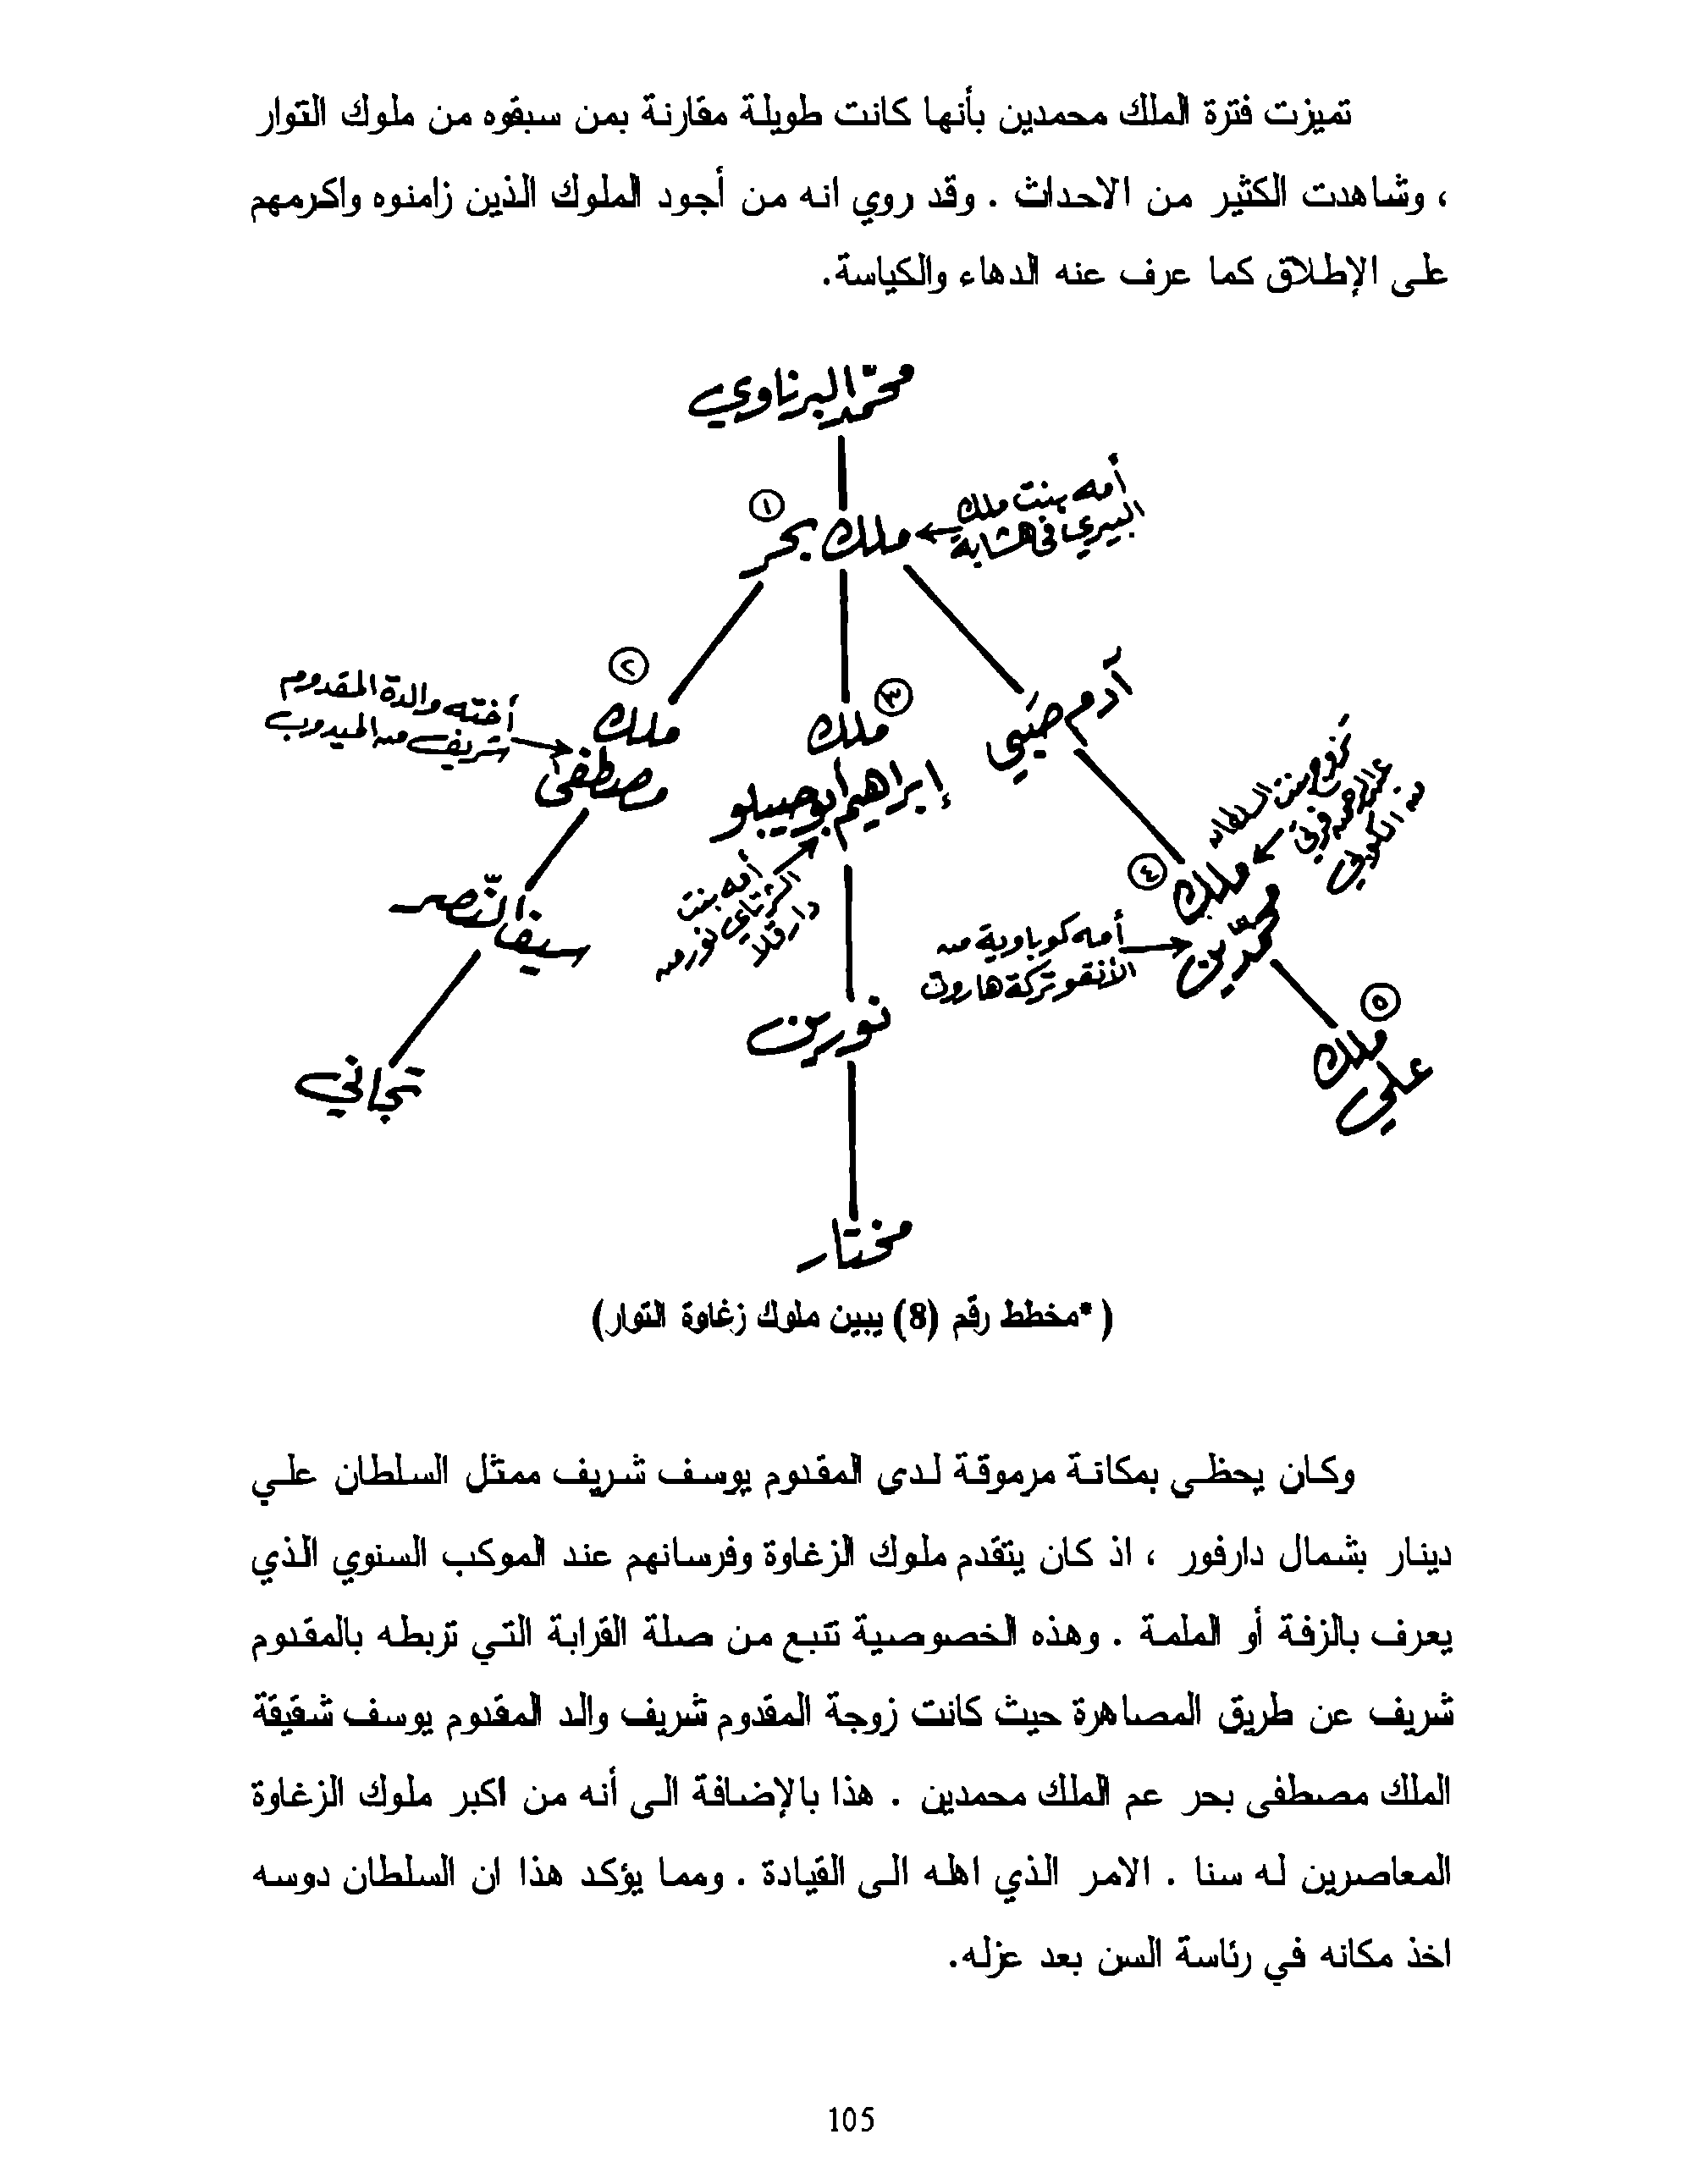 تميزت فترة الملك محمدين بأنها كانت طويلة مقارنة بمن سبقوه من ملوك التوار
، وشاهدت الكثير من الاحداث . وقد روي انه من أجود الملوك الذين زامنوه واكرمهم
على الإطلاق كما عرف عنه الدهاء والكياسة.
محمّد البرناوي
أمه بنت ملك
البيري في هشابة
١
ملك بحر
٢
ملك
مصطفى
أخته والدة المقدوم
شريف من الميدوب
٣
ملك
إبراهيم أبو حبيلو
أمه بنت
الشرتاي نور من
دار قلا
آدم صبي
٤
ملك
محمّدين
تزوج بنت السلطان
عبدالرحمن فرتي
من الكوبي
أمه كوباوية من
الأنقو تركة هارون
٥
ملك
علي
سيف النّصر
تجاني
نورين
مختار
( *مخطط رقم (8) يبين ملوك زغاوة التوار)
وكان يحظى بمكانة مرموقة لدى المقدوم يوسف شريف ممثل السلطان علي
دينار بشمال دارفور ، اذ كان يتقدم ملوك الزغاوة وفرسانهم عند الموكب السنوي الذي
يعرف بالزفة أو الملمة . وهذه الخصوصية تتبع من صلة القرابة التي تربطه بالمقدوم
شريف عن طريق المصاهرة حيث كانت زوجة المقدوم شريف والد المقدوم يوسف شقيقة
الملك مصطفى بحر عم الملك محمدين . هذا بالإضافة الى أنه من اكبر ملوك الزغاوة
المعاصرين له سنا . الامر الذي اهله الى القيادة . ومما يؤكد هذا ان السلطان دوسه
اخذ مكانه في رئاسة السن بعد عزله.
105